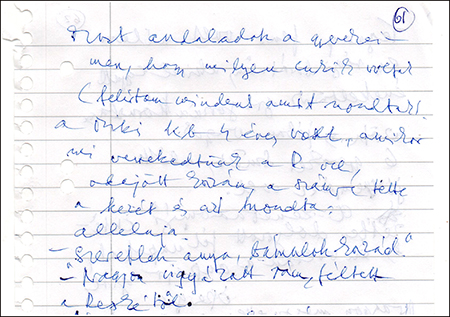 61
Most andalodok a gyerekei-
men, hogy milyen cukik voltak
(felírtam mindent amit mondtak)
a Miki kb 4 éves volt, amikor
mi verekedtünk a R. vel,
odajött hozzám, a számra tette
a kezét és azt mondta:
alleluja.
- "Szeretlek anya, bámulok hozzád."
- Nagyon vigyázott rám, féltett
a